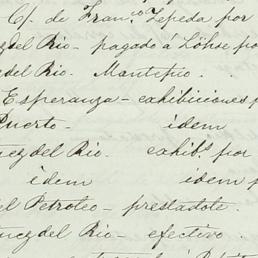 Cf. de Fran.co Zepeda por
del Rio - pagado á Löhse po
del Rio. Mantepio.
Esperanza - exhibiciones
Puerto - idem
uez del Rio. exhib.s por
idem idem p
el Petroleo - prestadote.
uez del Rio - efectivo.